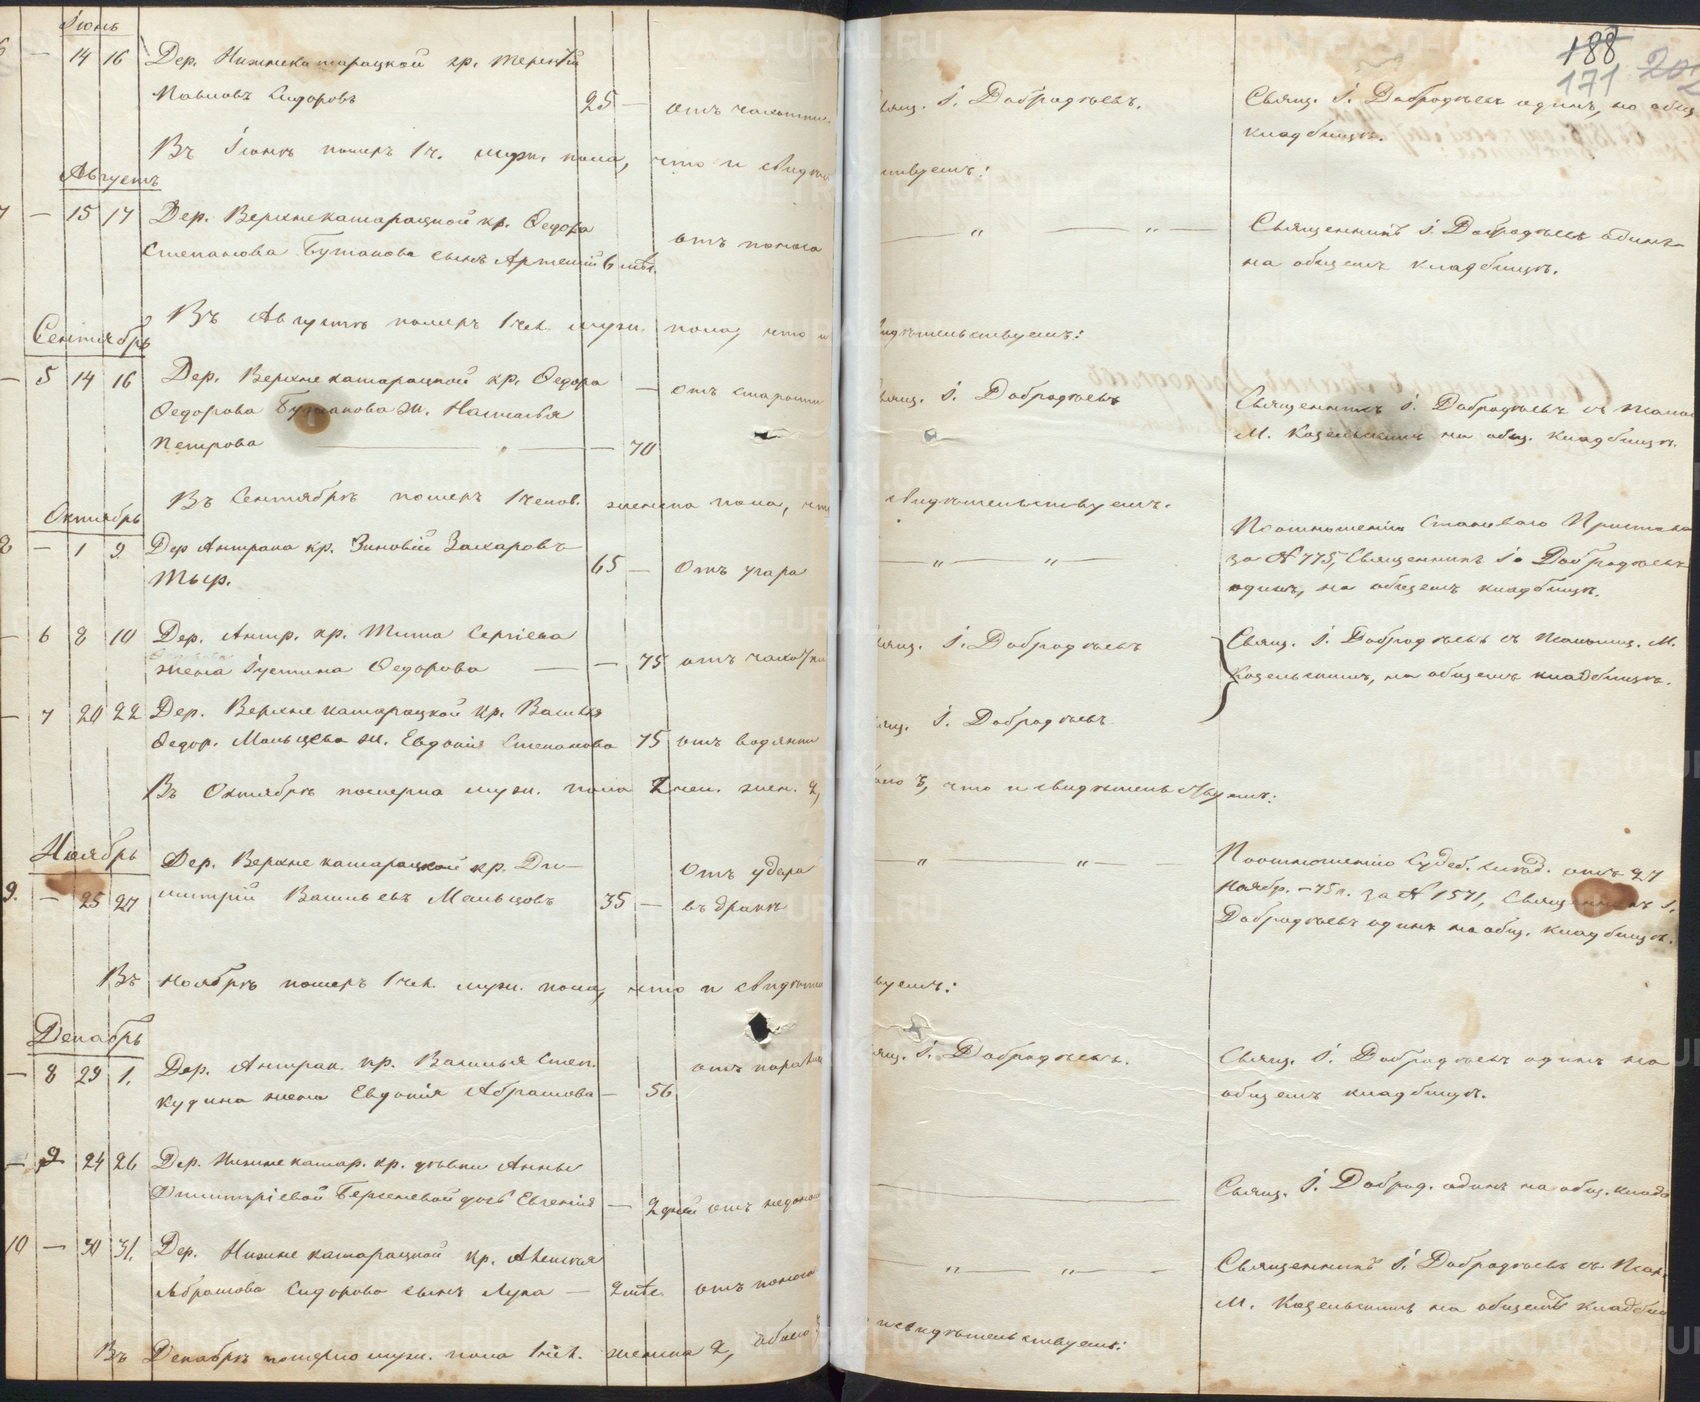 Іюнь
188
171
14 16 Дер. Нижнекатарацкой кр. Терентій
Павловъ Сидоровъ 25 — отъ чахотки
Свящ. І. Добродѣевъ.
Свящ. І. Добродѣевъ одинъ, на общ.
кладбищѣ.
Въ Іюнѣ померъ 1 ч. муж. пола, что и свидѣтельствуемъ:
Августъ
7 — 15 17 Дер. Верхнекатарацкой кр. Ѳедора
Степанова Бутакова сынъ Артемій 6 мѣс. отъ поноса
— „ — „ —
Священникъ І. Добродѣевъ одинъ
на общемъ кладбищѣ.
Въ Августѣ померъ 1 чел. муж. пола, что и свидѣтельствуемъ:
Сентябрь
— 5 14 16 Дер. Верхнекатарацкой кр. Ѳедора
Ѳедорова Бутакова ж. Наталья
Петрова — „ — 70
— отъ старости
Свящ. І. Добродѣевъ
Священникъ І. Добродѣевъ съ
М. Козельскимъ на общ. кладбищѣ.
Въ Сентябрѣ померъ 1 челов. женска пола, что свидѣтельствуемъ.
Октябрь
8 — 1 9 Дер Антрака кр. Зиновій Захаровъ
65 — Отъ угара
— „ — „ —
Поотношенію Становаго Пристава
за № 775, Священникъ І. Добродѣевъ
одинъ, на общемъ кладбищѣ.
— 6 8 10 Дер. Антр. кр. Тита Сергіева
жена Іустина Ѳедорова — — 75 отъ чахотки
Свящ. І. Добродѣевъ
Свящ. І. Добродѣевъ съ Псаломщ. М.
Козельскимъ, на общемъ кладбищѣ.
— 7 20 22 Дер. Верхнекатарацкой кр. Василья
Ѳедор. Мальцева ж. Евдокія Степанова 75 отъ водянки
Свящ. І. Добродѣевъ
Въ Октябрѣ померла муж. пола чел. жен. 2, что и свидѣтельствуемъ:
Ноябрь
9. — 25 27 Дер. Верхнекатарацкой кр. Ди-
митрій Васильевъ Мальцовъ 35 —
Отъ удара
въ дракѣ
— „ — „ —
Поотношенію Судеб. Слѣд. отъ 27
Ноябр. — 75 г. за № 1571, Священникъ І.
Добродѣевъ одинъ на общ. кладбищѣ.
Въ Ноябрѣ померъ 1 чел. муж. пола, что и свидѣтельствуемъ:
Декабрь
— 8 29 1. Дер. Антрак. кр. Василья Степ.
Кудина жена Евдокія Абрамова — 56
Свящ. І. Добродѣевъ.
Свящ. І. Добродѣевъ одинъ на
общемъ кладбищѣ.
— 9 24 26 Дер. Нижнекатар. кр. дѣвки Анны
Димитріевой Бергеневой дочь Евгенія — 2 дней отъ недонос.
Свящ. І. Доброд. одинъ на общ. кладб.
10 — 30 31. Дер. Нижнекатарацкой кр. Алексѣя
Абрамова Сидорова сынъ Лука — 2 мѣс. отъ поноса
— „ — „ —
Священникъ І. Добродѣевъ съ Псал.
М. Козельскимъ на общемъ кладбищ
Въ Декабрѣ померло муж. пола 1 чел. женска 2, обоего и свидѣтельствуемъ: